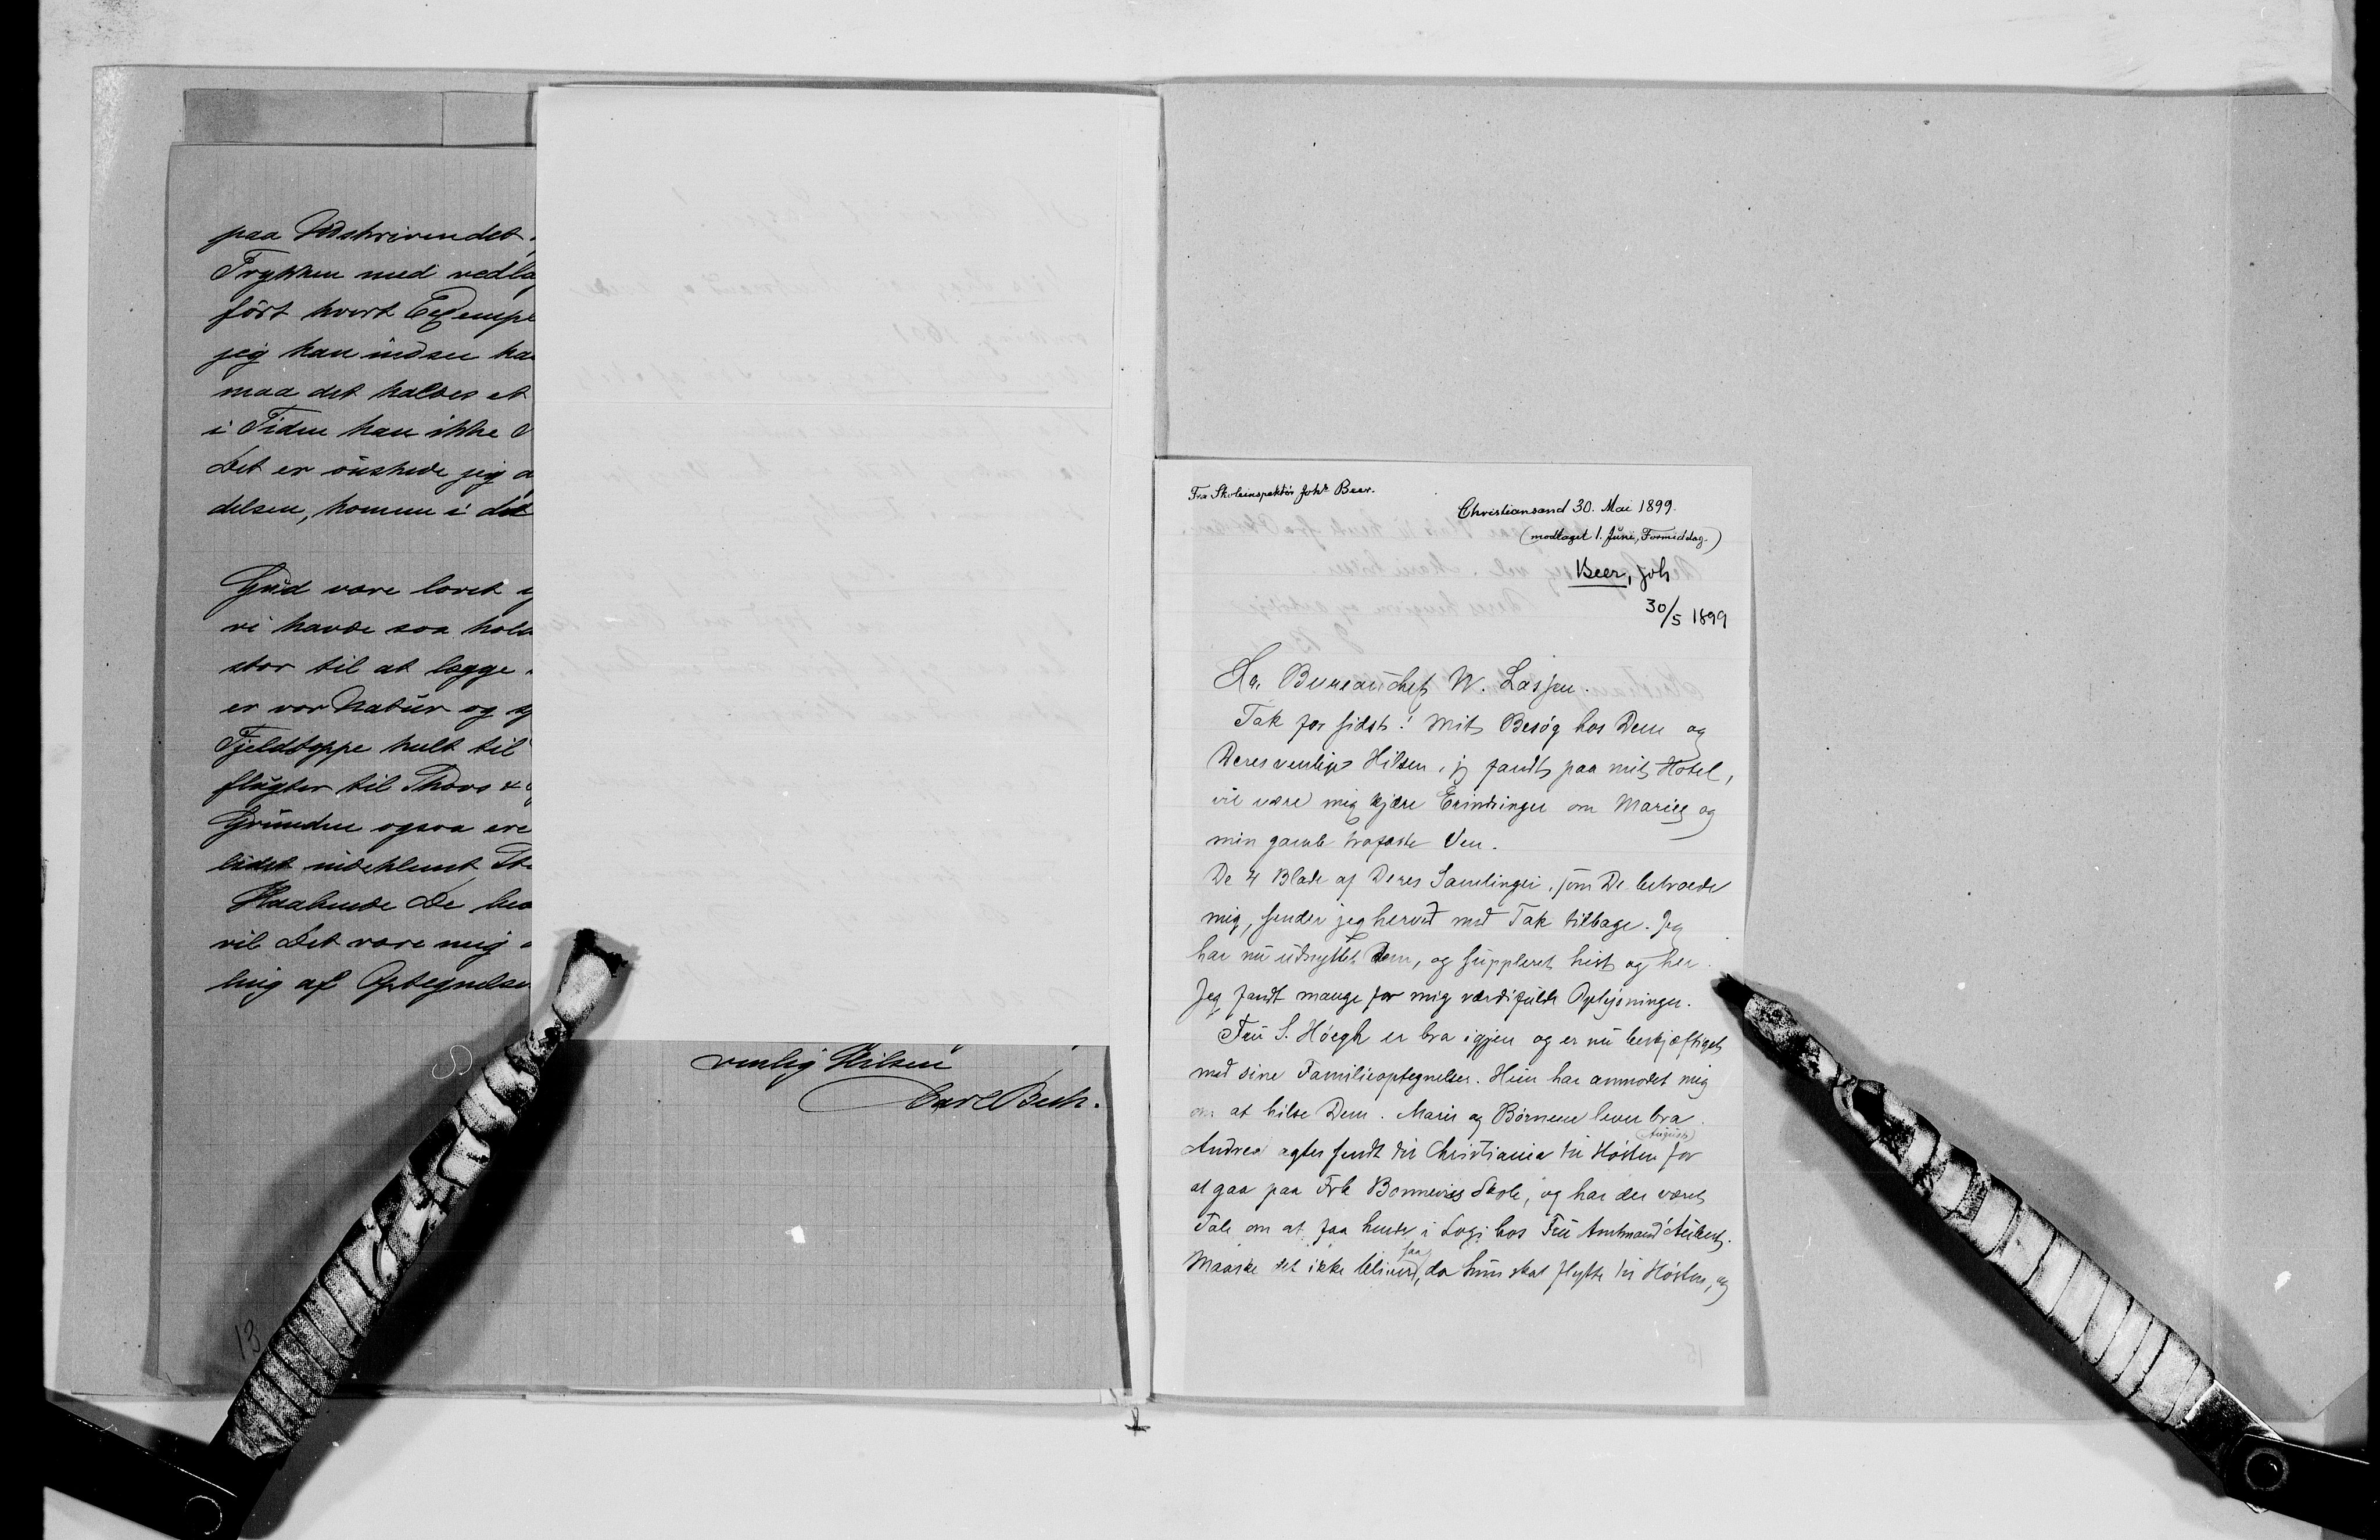 paa Udskrivendet
Trykken med vedla
ført hvert Exempl
jeg kan indsee ka
maa det kaldes et
i Tiden kan ikke
Det er ønskede jeg a
delsen, komme i det
Gud være lovet
vi havde saa hold
stor til at lægge
er vor Natur og
Fjeldtoppe hult til
flugter til Thors &
Grunden ogsaa ere
lidet indeklemt
Haabende De
vil Det være mig
ling af Optegnelser
13
venlig Hilsen
Carl Bech.
Fra Skoleinspektør Johs Beer.
Christiansand 30. Mai 1899.
(modtaget 1. Juni, Formiddag.)
Beer, Joh
30/5 1899
Hr. Bureauchef W. Lassen.
Tak for sidst! Mit Besøg hos Dem og
Deres venlige Hilsen, jeg fandt paa mit Hotel,
vil være mig kjære Erindringer om Maries og
min gamle trofaste Ven.
De 4 Blade af Deres Samlinger, som De betroede
mig, sender jeg herved med Tak tilbage. Jeg
har nu udnyttet dem, og suppleret hist og her.
Jeg fandt mange for mig værdifulde Oplysninger.
Fru S. Høegh er bra igjen og er nu beskjæftiget
med sine Familieoptegnelser. Hun har anmodet mig
om at hilse Dem. Marie og Børnene lever bra.
(August)
Andrea agtes sendt til Christiania til Høsten for
at gaa paa Frk Bonnevies Skole, og har der været
Tale om at faa hende i Logi hos Fru Amtmand Aubert.
Maaske det ikke bliver saa, da hun skal flytte til Høsten, og
15